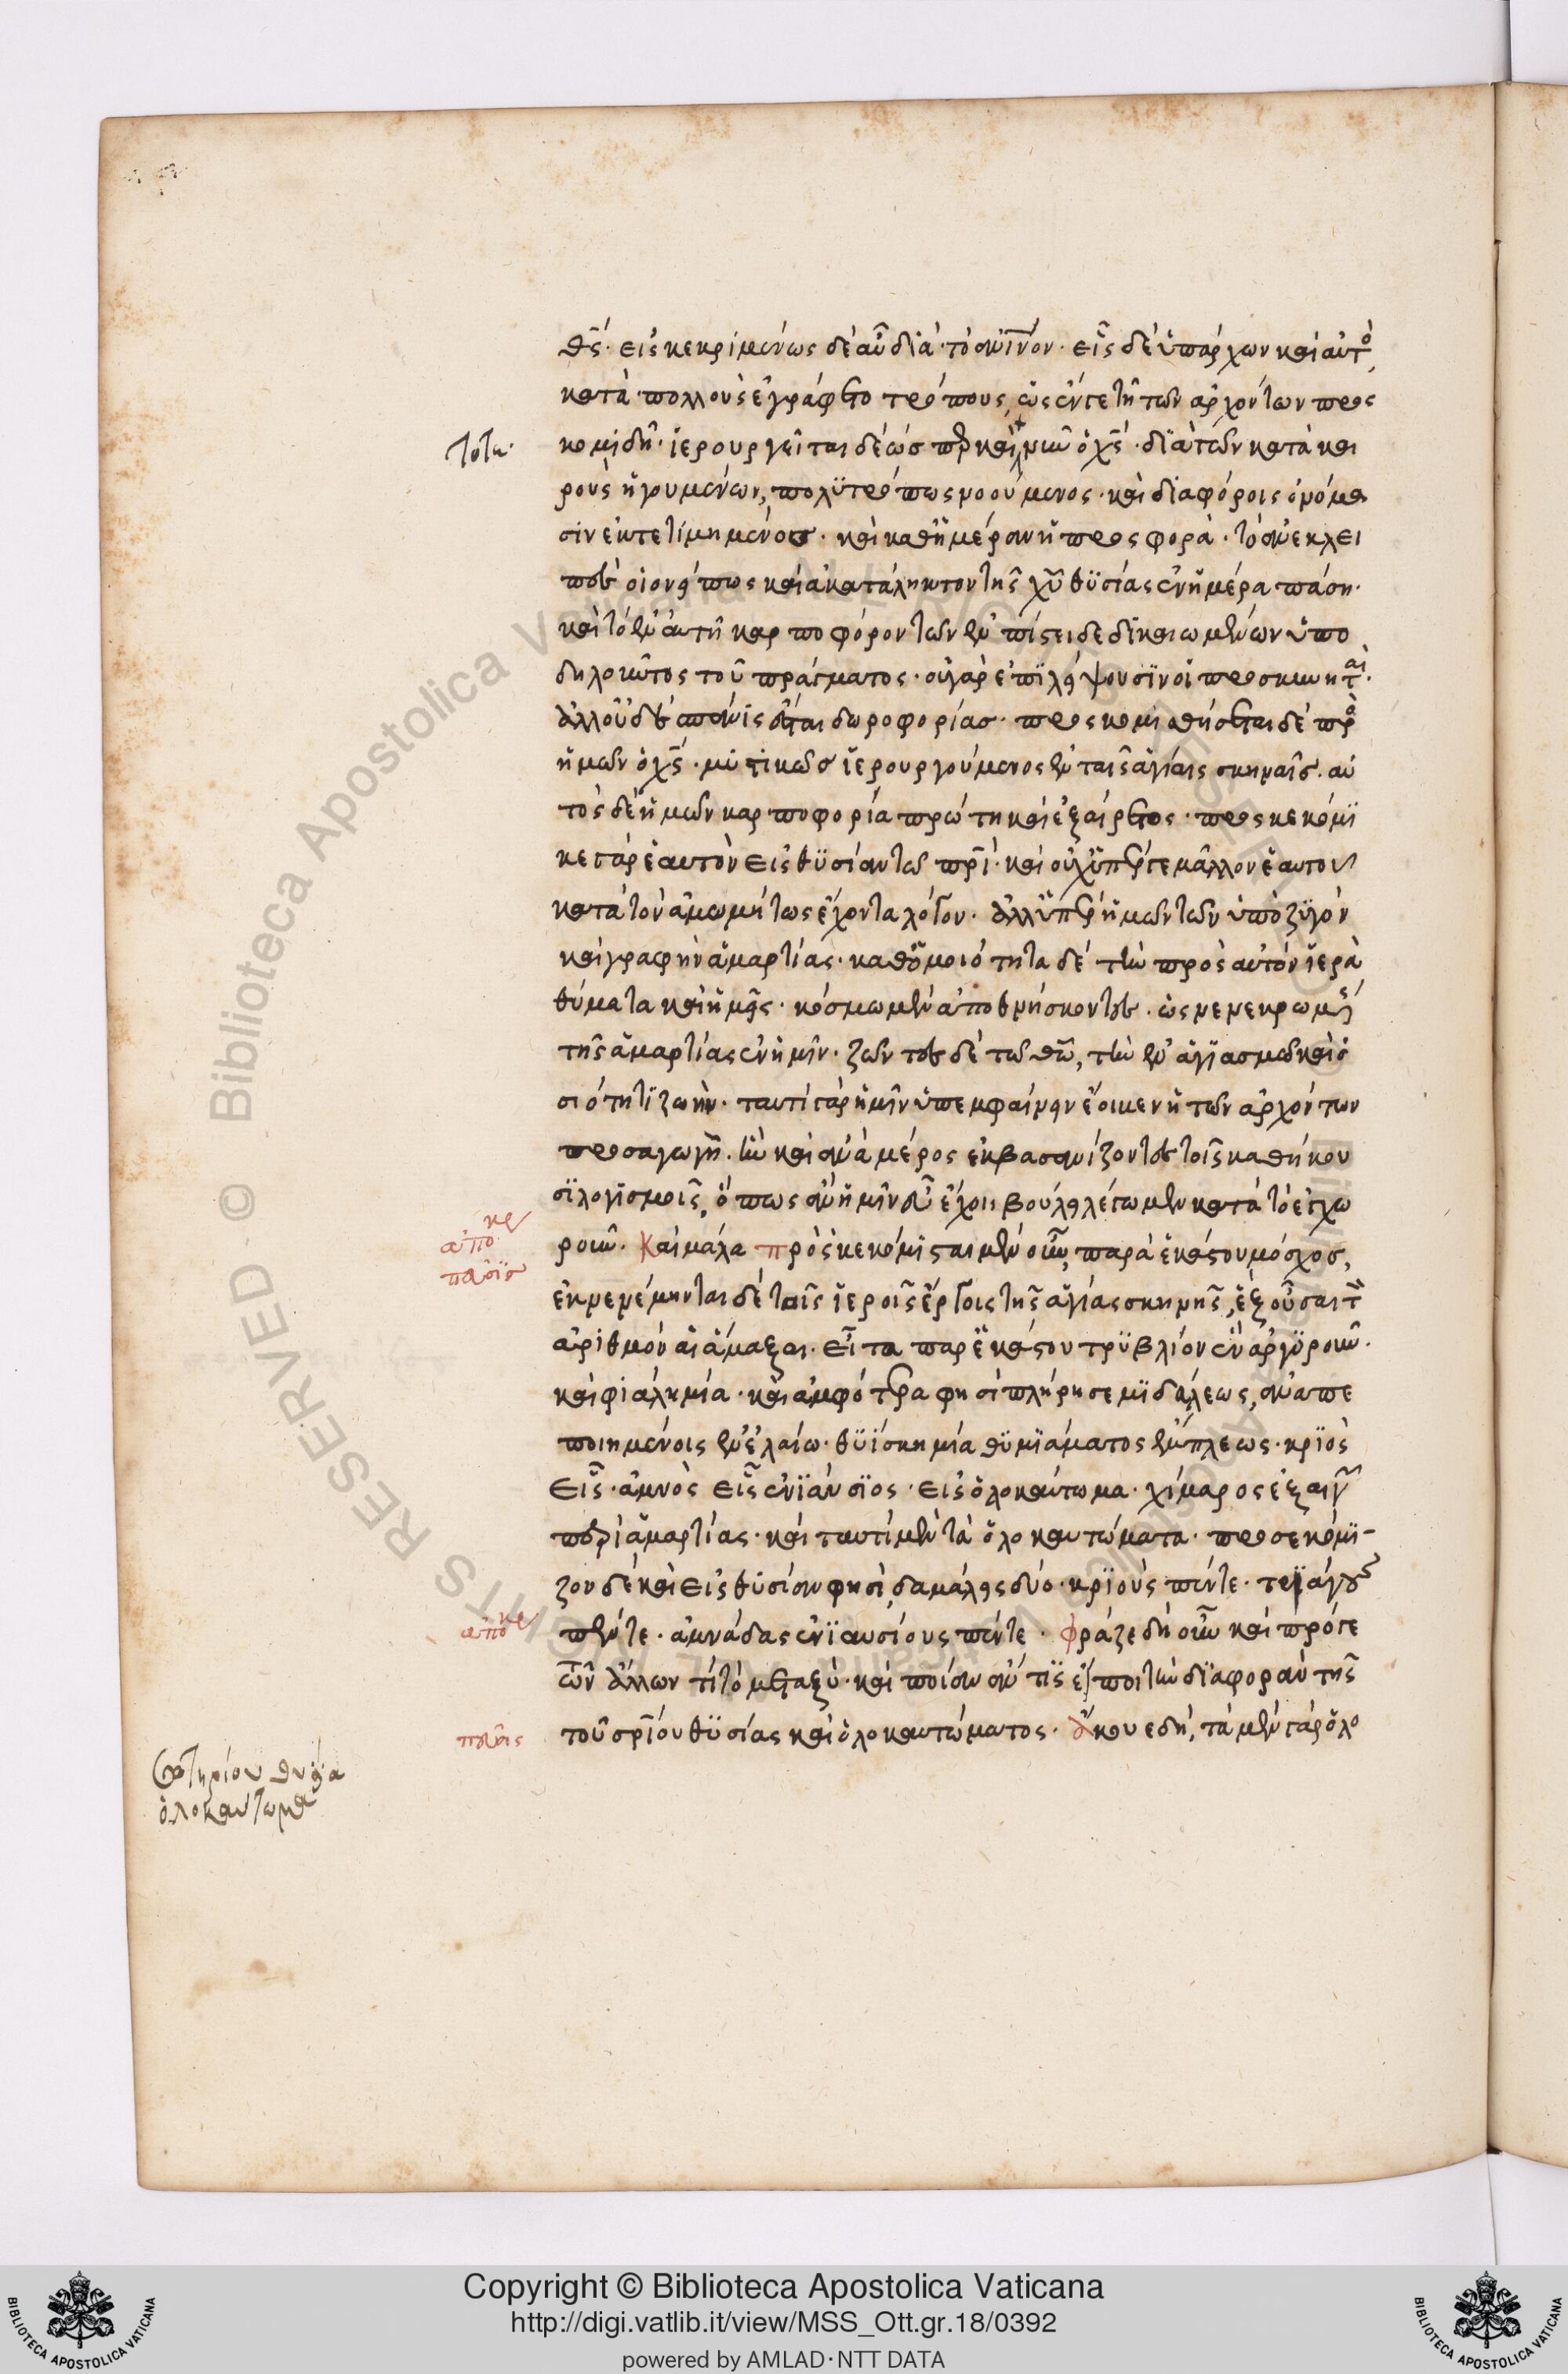 θς· εἰσκεκριμένως δὲ αὖ διὰ τὸ ἀνῖνον· εἷς δὲ ὑπάρχων καὶ αὐτὸ
κατὰ πολλοὺς ἐγράφετο τρόπους, ὡς ἐν τε τῆ τῶν ἀρχόντων προς
κομιδῆ· ἱερουργεῖται δὲ ὡς πὲρ καὶ νῦν ὁ χς· διὰ τῶν κατὰ και
ροὺς ἡγουμένων, πολυτρόπως νοούμενος· καὶ διαφόροις ὀνόμα
σιν ἐκτετιμημένος· καὶ καθημέραν ἡ προσφορὰ· τὸ ἀνεκλει
πὲς οἱονεί πως καὶ ἀκατάληκτον τῆς χυ θυσίας ἐν ἡμέρα πάση·
καὶ τὸ ἐν αὐτῆ καρποφόρον τῶν ἐν πίστει δεδικαιωμένων ὑπο
δηλοῦντος τοῦ πράγματος· οὐ γὰρ ἐπιλείψουσιν οἱ προσκυνηταὶ·
ἀλλ οὐδὲ ἀπανίσταται δωροφορίας· προσκομισθήσεται δὲ πρὸ
ἡμῶν ὁ χς· μυστικῶς ἱερουργούμενος ἐν ταῖς ἁγίαις σκηναῖς· αὐ
τὸς δὲ ἡμῶν καρποφορία πρώτη καὶ ἐξαίρετος· προσκεκόμι
κε γὰρ ἑαυτὸν εἰς θυσίαν τῶ πρὶ· καὶ οὐχ ὑπέρ γε μᾶλλον ἑαυτοῦ
κατὰ τὸν ἀμωμήτως ἔχοντα λόγον· ἀλλ ὑπὲρ ἡμῶν τῶν ὑπὸ ζυγὸν
καὶ γραφὴν ἁμαρτίας· καθ ὁμοιότητα δὲ τὴν πρὸς αὐτὸν ἱερὰ
θύματα καὶ ἡμεῖς· κόσμω μὲν ἀποθνήσκοντες· ὡς νενεκρωμέ
τῆς ἁμαρτίας ἐν ἡμῖν· ζῶντες δὲ τῶ θῶ, τὴν ἐν ἁγιασμῶ καὶ ὁ
σιότητι ζωὴν· ταυτὶ γὰρ ἡμῖν ὑπεμφαίνειν ἔοικεν ἡ τῶν ἀρχόντων
προσαγωγῆ· ἣν καὶ ἀνὰ μέρος ἐκβασανίζοντες τοῖς καθήκου
σι λογισμοῖς, ὅπως ἂν ἡμῖν εὖ ἔχοι βουλῆ λέγωμεν κατὰ τὸ ἐγχω
ροῦν. Καὶ μάλα προσκεκόμισται μὲν οὖν, παρὰ ἑκάστου μόσχος,
ἐκνενέμηνται δὲ τοῖς ἱεροῖς ἔργοις τῆς ἁγίας σκηνῆς, ἓξ οὖσαι τ
ἀριθμὸν αἱ ἅμαξαι· εἶτα παρ ἑκάστου τρυβλίον ἓν ἀργυροῦν·
καὶ φιάλη μία· καὶ ἀμφότερα φησὶ πλήρη σεμιδάλεως, ἀναπε
ποιημένοις ἐν ἐλαίω· θυΐσκη μία θυμιάματος ἔμπλεως· κριὸς
εἷς· ἀμνὸς εἷς ἐνιαύσιος· εἰς ὁλοκαύτωμα· χίμαρος ἐξ αἰγ
περὶ ἁμαρτίας· καὶ ταυτὶ μὲν τὰ ὁλοκαυτώματα· προσεκόμι-
ζον δὲ καὶ εἰς θυσίαν φησὶ, δαμάλεις δύο· κριοὺς πέντε· τράγους
πέντε· ἀμνάδας ἐνιαυσίους πέντε· φράζε δὴ οὖν καὶ πρό γε
τῶν ἄλλων τί τὸ μεταξὺ· καὶ ποίαν ἄν τις εἴποι τὴν διαφορὰν τῆς
τοῦ σρίου θυσίας καὶ ὁλοκαυτώματος· ἄκουε δὴ, τὰ μὲν γὰρ ὁλο
ἀποκρ
παῦσις
ἀποκρ
παῦσις
Σωτηρίου θυσία
ὁλοκαύτωμα
Copyright © Biblioteca Apostolica Vaticana
http://digi.vatlib.it/view/MSS_Ott.gr.18/0392
powered by AMLAD·NTT DATA
BIBLIOTECA APOSTOLICA VATICANA
BIBLIOTECA APOSTOLICA VATICANA